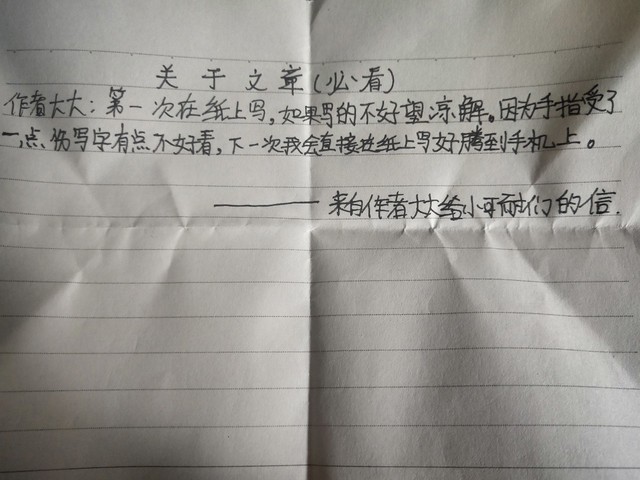 关于文章(必看)
作者大大:第一次在纸上写,如果写的不好望凉解。因为手指受了
一点伤写字有点不好看,下一次我会直接在纸上写好腾到手机上。
——来自作者大大给小可耐们的信.